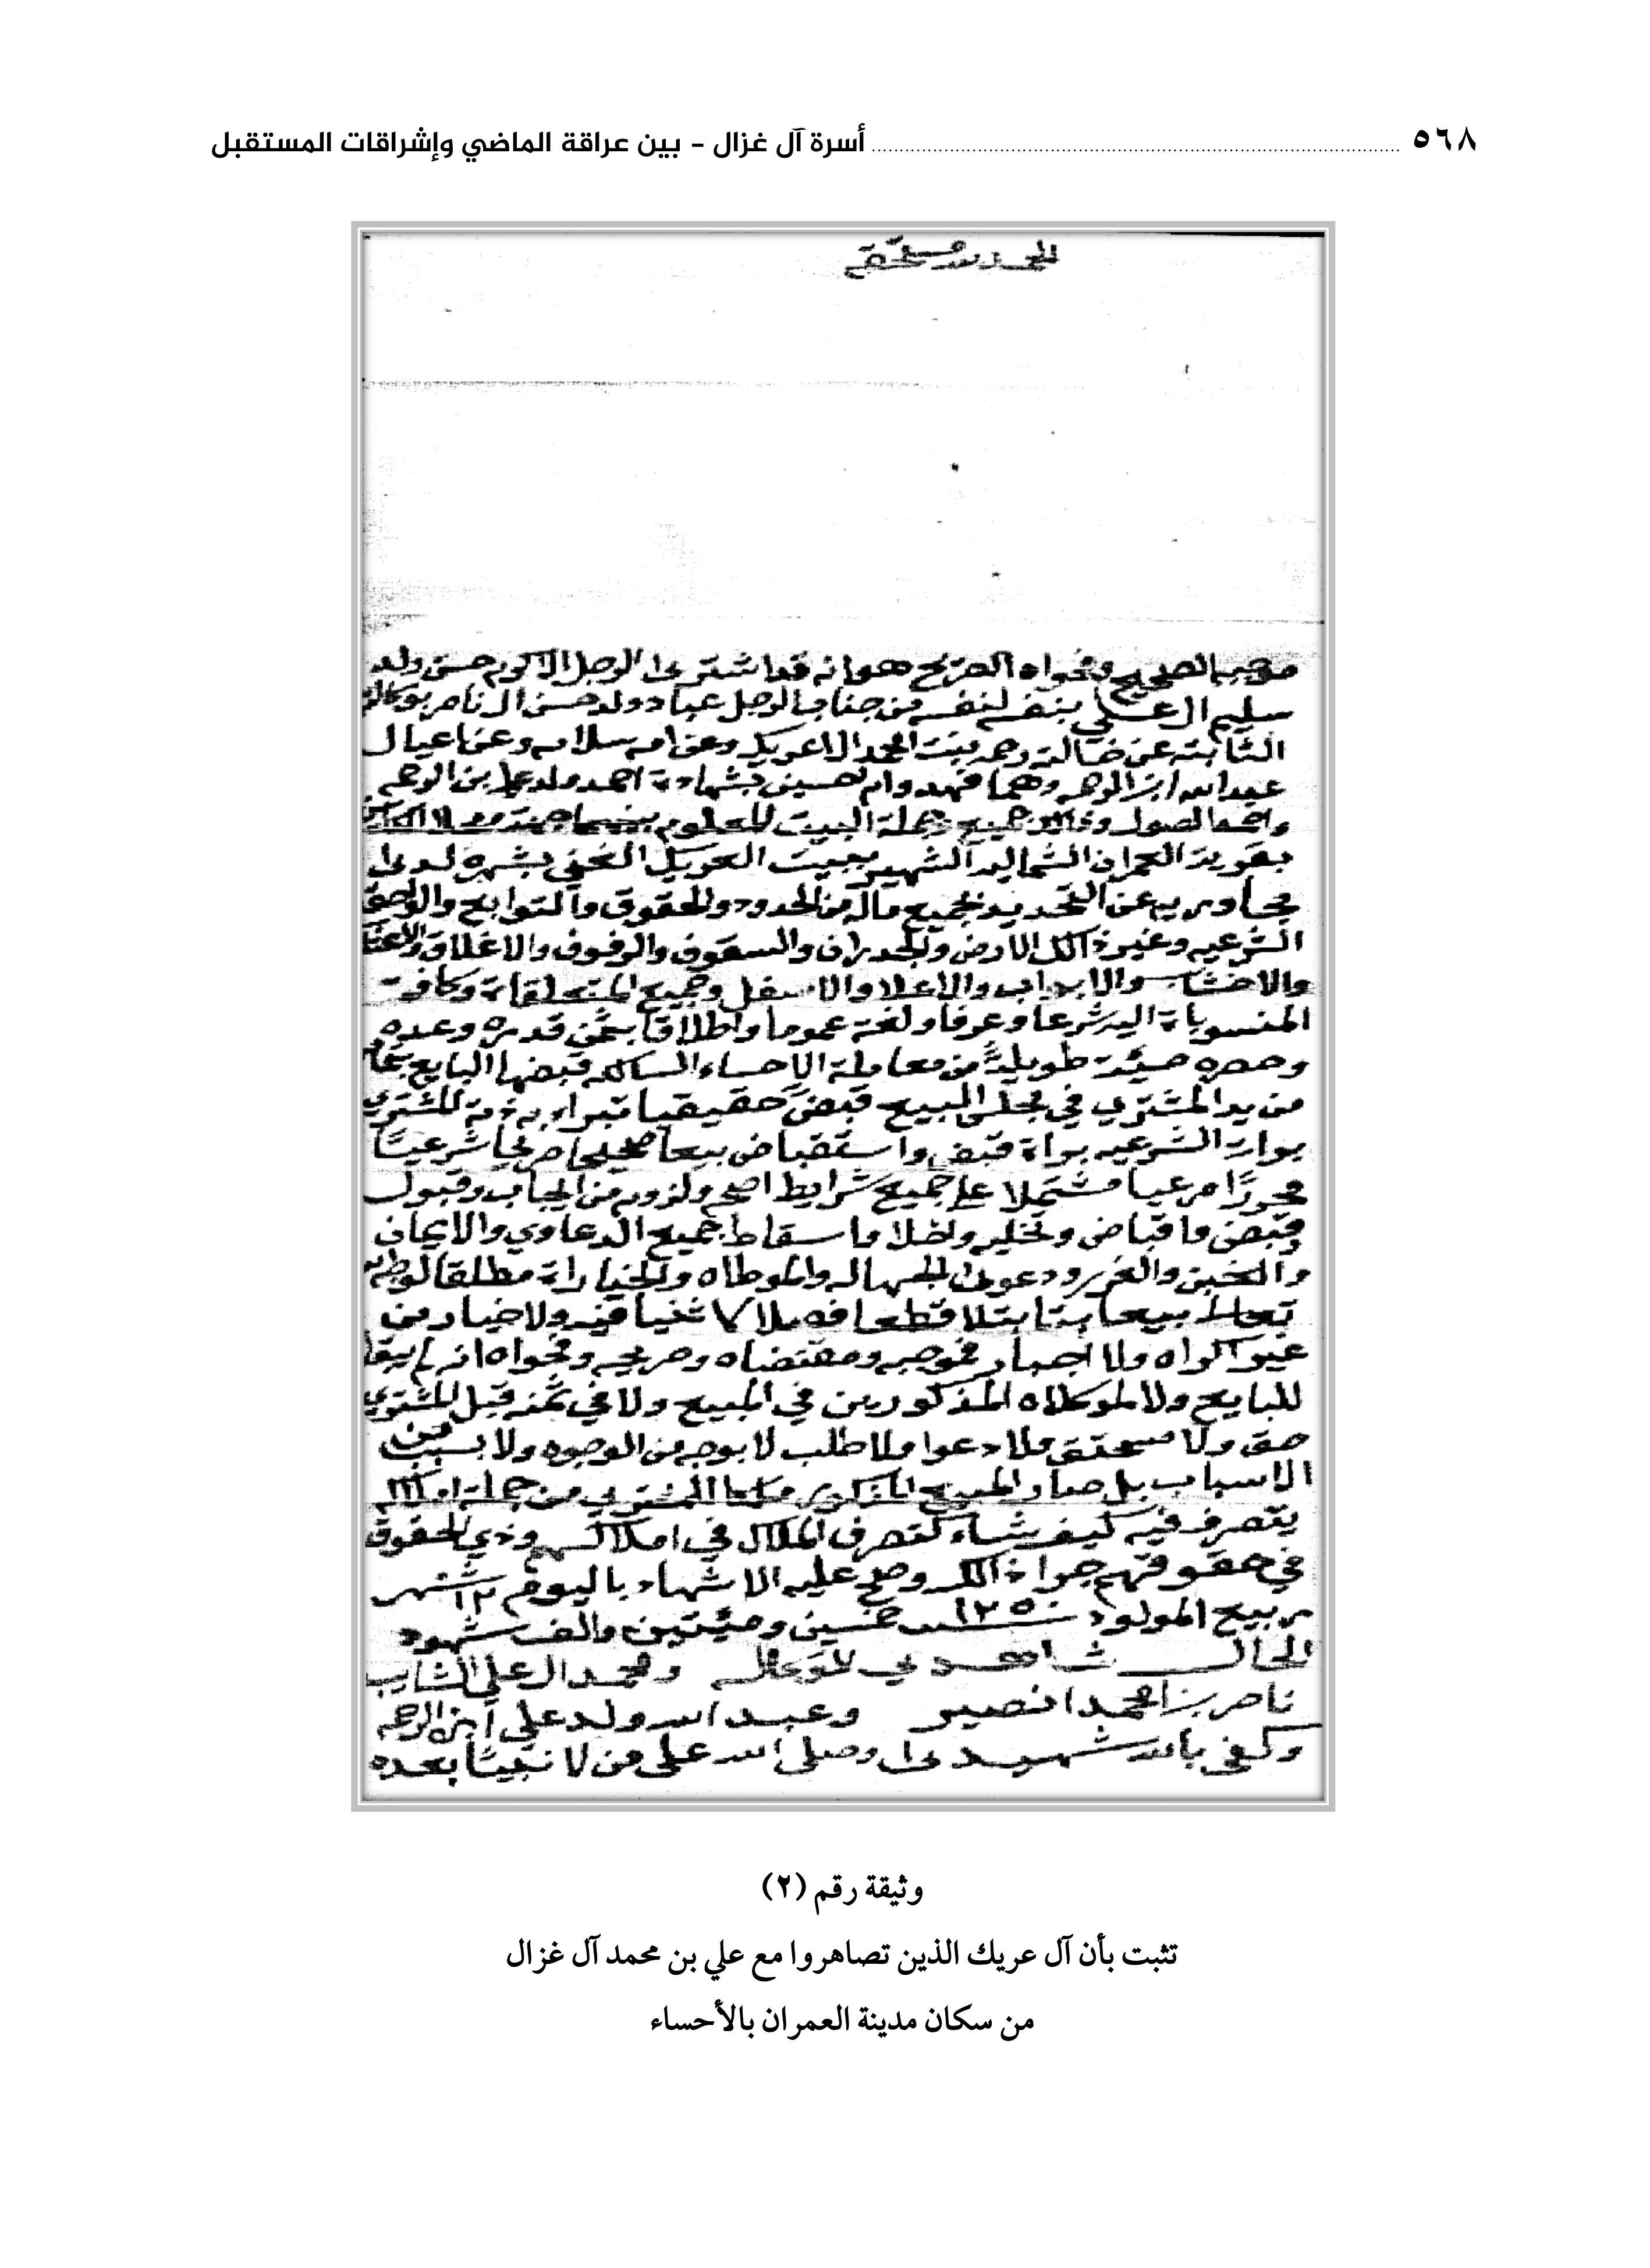 ٥٦٨ أسرة آل غزال - بين عراقة الماضي وإشراقات المستقبل
الحمد لله مستحقه
موجبه الصحيح وفحواه الصريح هو انه قد اشترى الرجل الاكرم حسن ولد
سليم ال علي بنفسه لنفسه من جناب الرجل عباد ولد حسن ال ناصر بوكالته
الثابتة عن خالته رحمه بنت المحمد ال اعريك وعن امه سلامه وعن اعيال
عبدالله ابن الرحمه وهما فهد وام حسين بشهادة احمد ولد علي بن الرحمه
جميع جملة البيت المعلوم
بقرية العمران الشماليه الشهير ببيت العريك الغني بشهره لدى
مجاوريه عن التحديد بجميع ماله من الحدود والحقوق والتوابع واللواحق
الشرعيه وغير ذالك الارض والجدران والسقوف والرفوف والاغلاق
والاخشاب والابواب والاعلا والاسفل وجميع المتعلقات وكافت
المنسوبات اليه شرعا وعرفا ولغة عموما واطلاقا بثمن قدره وعدده
وحصره ميئة طويلة من معاملة الاحساء السالكه قبضها البايع
من يد المشتري في مجلس المبيع قبضً حقيقيا تبراء به ذمة المشتري
براة قبض واستقباض بيعا صحيحا صريحا شرعيًا
محررًا مرعيا مشتملا على جميع شرايط اصحه ولزومه من ايجاب وقبول
وقبض واقباض وتخليه واخلا واسقاط جميع الدعاوي والايمان
والغبن والغرر ودعوى الجهاله والموطاه والخيارات مطلقا
بيعا بتا بتلا قطعا فصلا لا ثنيا فيه ولا خيار من
غير اكراه ولا اجبار فموجبه ومقتضاه وصريحه وفحواه انه لم يبقا
للبايع ولا لموكلاه المذكورين في المبيع ولا في ثمنه قبل المشتري
حق ولا مستحق ولا دعوا ولا طلب لا بوجه من الوجوه ولا بسبب من
الاسباب بل صار المبيع المذكور ملكا للمشتري من جملة املاكه
يتصرف فيه كيف شاء كتصرف الملاك في املاكهم وذوي الحقوق
في حقوقهم جرا ذالك وصح عليه الاشهاد باليوم ١٢ شهر
ربيع المولود سنة ١٢٥٠ خمسين وميئتين والف شهود
الحال ومحمد ال علي الشايب
ناصر بن امحمد النصير وعبد الله ولد علي ابن الرحمه
وكفى بالله شهيدا وصلى الله على من لا نبيا بعده
وثيقة رقم (٢)
تثبت بأن آل عريك الذين تصاهروا مع علي بن محمد آل غزال
من سكان مدينة العمران بالأحساء